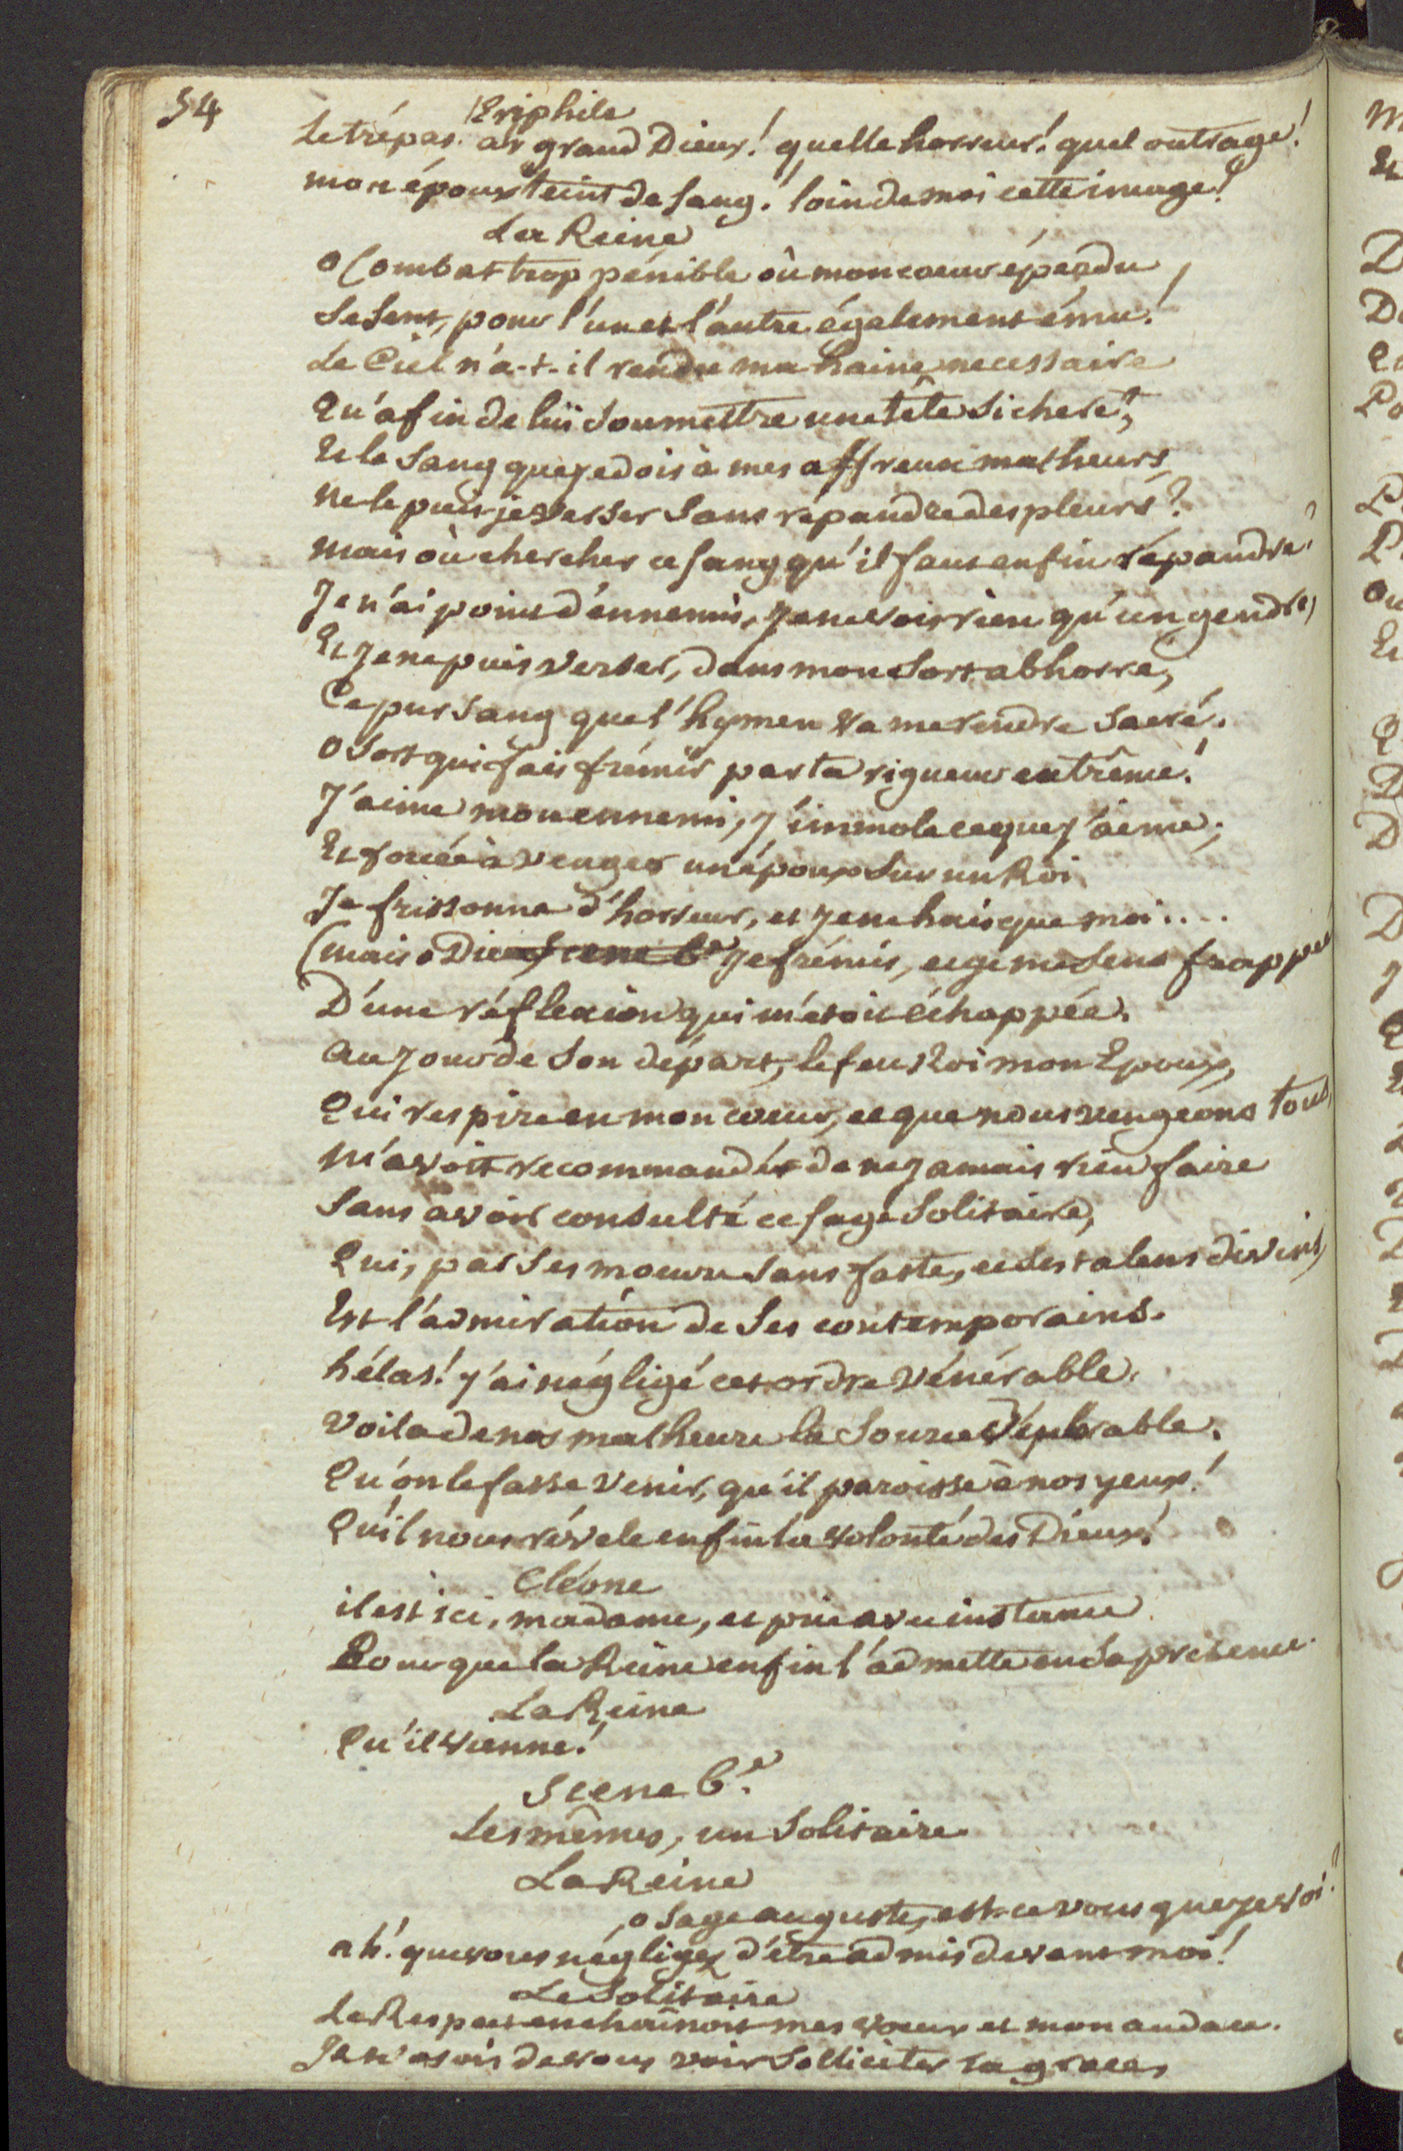 54
Eriphile
Le trépas. ah grand Dieux! quelle horreur! quel outrage!
mon époux teint de sang. loin de moi cette image!
La Reine
o Combat trop pénible où mon coeur éperdu
Se Sent, pour l'un et l'autre également ému!
Le Ciel n'a-t-il rendu ma haine necessaire
Qu'afin de lui Soumettre une tête Si chere?,
Et le Sang que je dois à mes affreux malheurs,
Ne le puis je verser Sans répandre des pleurs?
Mais où chercher ce sang qu'il faut enfin répandre?
Je n'ai point d'ennemis, je ne vois rien qu'un gendre,
Et je ne puis verser, dans mon Sort abhorré,
Ce pur Sang que l'hymen va me rendre Sacré.
o Sort qui fais frémir par ta rigueur extrême!
J'aime mon ennemi, j'immole ce que j'aime;
Et forcée à venger un époux Sur un Roi
Je frissonne d'horreur, et je ne hais que moi....
(mais o Dieu Scene 6e Je frémis, et je me Sens frappée
D'une réflexion qui m'étoit échappée.
Au jour de Son départ, le feu Roi mon Epoux,
Qui respire en mon coeur, et que nous vengeons tous,
M'avoit recommandé de ne jamais rien faire
Sans avoir consulté ce sage Solitaire,
Qui, par Ses moeurs Sans faste, et Ses talens divins,
Est l'admiration de Ses contemporains.
hélas! j'ai négligé cet ordre vénérable.
Voila de nos malheurs la Source déplorable.
Qu'on le fasse venir, qu'il paroisse à nos yeux!
Qu'il nous révele enfin la volonté des Dieux!
Cléone
il est ici, madame, et prie avec instance
Pour que la Reine enfin l'admette en Sa présence.
La Reine
Qu'il vienne!
Scene 6e.
Les mêmes, un Solitaire
La Reine
o Sage auguste, est-ce vous que je voi?
ah! que vous négligez d'être admis devant moi!
Le Solitaire
Le Respect enchaînoit mes voeux et mon audace.
Je n'osois de vous voir Solliciter la grace,